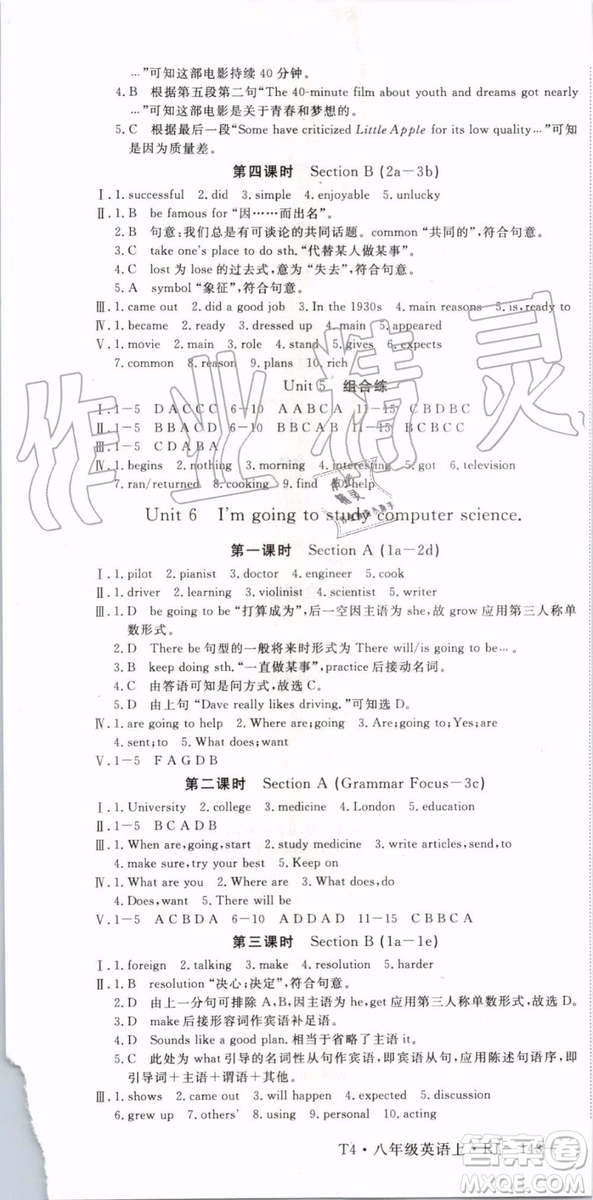 …”可知这部电影持续 40 分钟。
4. B 根据第五段第二句“The 40-minute film about youth and dreams got nearly
…”可知这部电影是关于青春和梦想的。
5. C 根据最后一段“Some have criticized Little Apple for its low quality…”可知
是因为质量差。
第四课时 Section B (2a－3b)
Ⅰ. 1. successful 2. did 3. simple 4. enjoyable 5. unlucky
Ⅱ. 1. B be famous for “因……而出名”。
2. B 句意：我们总是有可谈论的共同话题。common “共同的”，符合句意。
3. C take one's place to do sth. “代替某人做某事”。
4. C lost 为 lose 的过去式，意为“失去”，符合句意。
5. A symbol “象征”，符合句意。
Ⅲ. 1. came out 2. did a good job 3. In the 1930s 4. main reasons 5. is, ready to
Ⅳ. 1. became 2. ready 3. dressed up 4. main 5. appeared
Ⅴ. 1. movie 2. main 3. role 4. stand 5. gives 6. expects
7. common 8. reason 9. plans 10. rich
Unit 5 组合练
Ⅰ. 1－5 DACCC 6－10 AABCA 11－15 CBDBC
Ⅱ. 1－5 BBACD 6－10 BBCAB 11－15 CBCBD
Ⅲ. 1－5 CDABA
Ⅳ. 1. begins 2. nothing 3. morning 4. interesting 5. got 6. television
7. ran/returned 8. cooking 9. find 10. help
Unit 6 I'm going to study computer science.
第一课时 Section A (1a－2d)
Ⅰ. 1. pilot 2. pianist 3. doctor 4. engineer 5. cook
Ⅱ. 1. driver 2. learning 3. violinist 4. scientist 5. writer
Ⅲ. 1. D be going to be “打算成为”，后一空因主语为 she，故 grow 应用第三人称单
数形式。
2. D There be 句型的一般将来时形式为 There will/is going to be…。
3. B keep doing sth. “一直做某事”，practice 后接动名词。
4. C 由答语可知是问方式，故选 C。
5. D 由上句“Dave really likes driving.”可知选 D。
Ⅳ. 1. are going to help 2. Where are; going 3. Are; going to; Yes; are
4. sent; to 5. What does; want
Ⅴ. 1－5 FAGDB
第二课时 Section A (Grammar Focus－3c)
Ⅰ. 1. University 2. college 3. medicine 4. London 5. education
Ⅱ. 1－5 BCADB
Ⅲ. 1. When are, going, start 2. study medicine 3. write articles, send, to
4. make sure, try your best 5. Keep on
Ⅳ. 1. What are you 2. Where are 3. are going to be
4. Does, want 5. There will be
Ⅴ. 1－5 ACBDA 6－10 ADDAD 11－15 CBBCA
第三课时 Section B (1a－1e)
Ⅰ. 1. foreign 2. talking 3. make 4. resolution 5. harder
Ⅱ. 1. B resolution “决心；决定”，符合句意。
2. D 由上一分句可排除 A、B，因主语为 he，get 应用第三人称单数形式，故选 D。
3. D make 后接形容词作宾语补足语。
4. D Sounds like a good plan. 相当于省略了主语 it。
5. C 此处为 what 引导的名词性从句作宾语，即宾语从句，应用陈述句语序，即
引导词＋主语＋谓语＋其他。
Ⅲ. 1. shows 2. came out 3. will happen 4. to read 5. against
6. grew up 7. others' 8. using 9. personal 10. are using
T4·八年级英语上·RJ－148－
作业精灵
答案圈